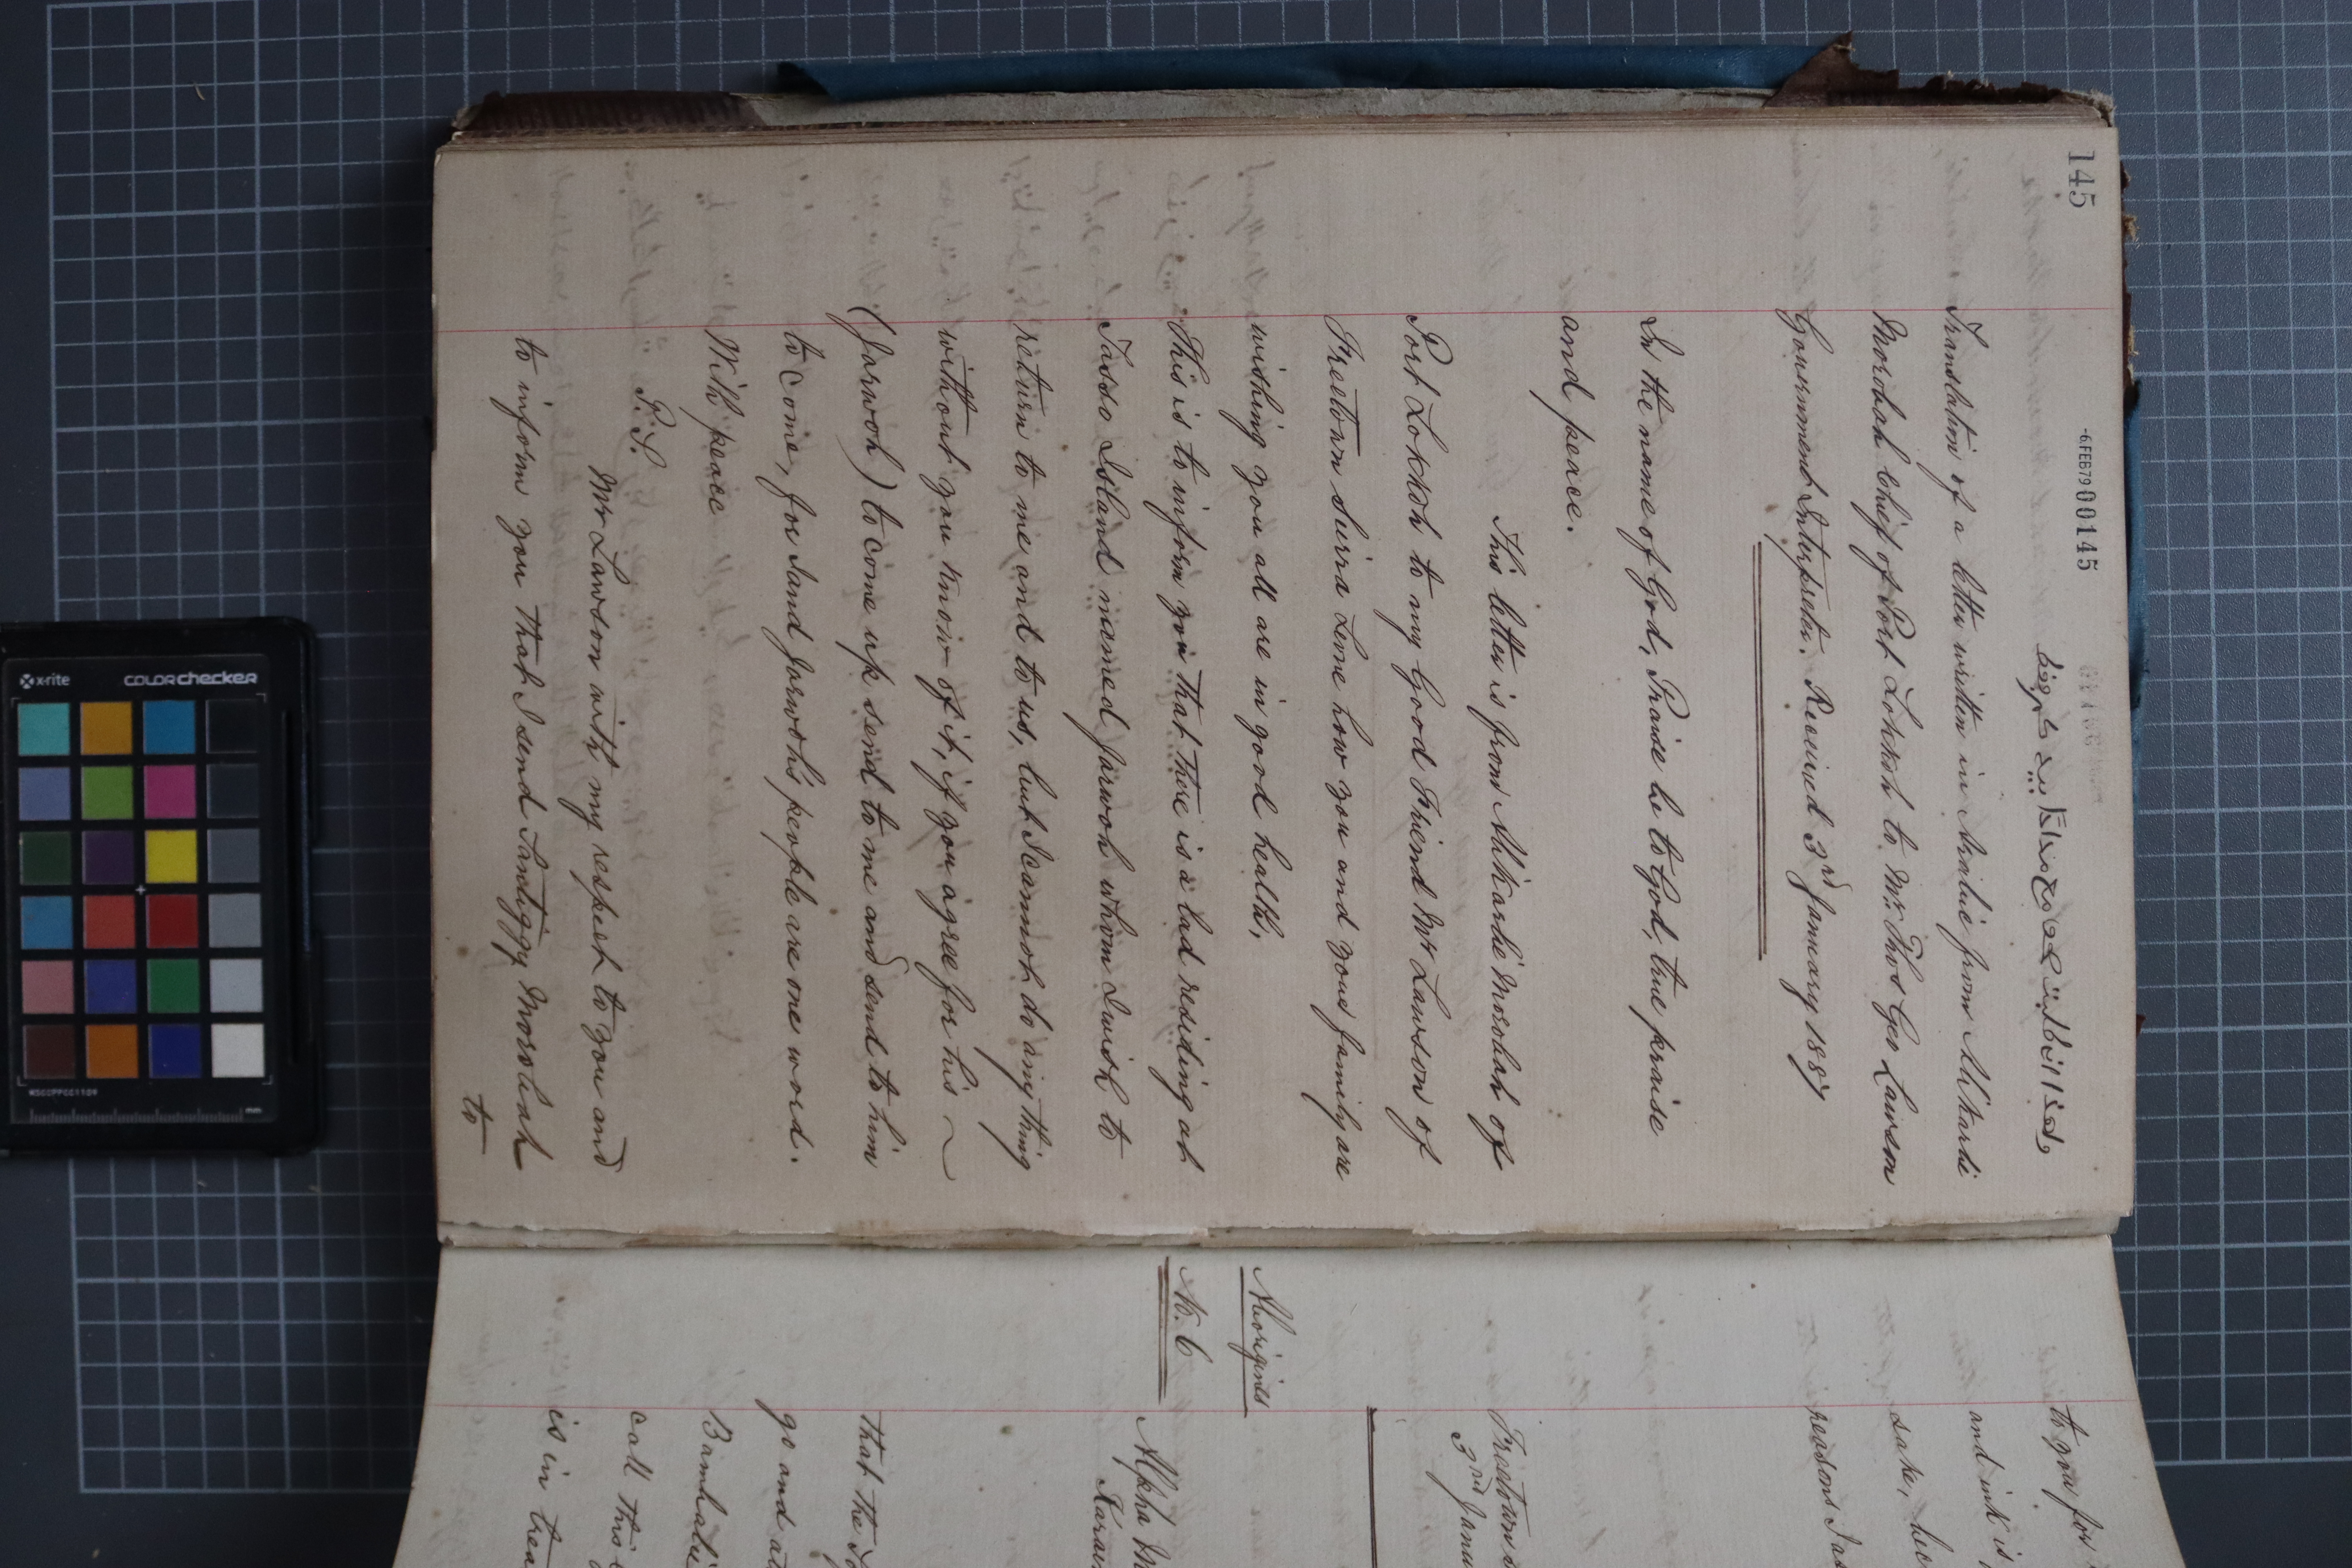 145
-6FEB79 00145
Translation of a letter written in Arabic from Alikarli
Morobah Chief of Port Lokkoh to Mr. Thos Geo Lawson
Government Interpreter. Received 3rd January 1887
In the name of God, Praise be to God, true praise
and peace.
This letter is from Alikarlie Morobah of
Port Lokkoh to my Good Friend Mr Lawson of
Freetown Sierra Leone how you and your family are
wishing you all are in good health,
This is to inform you that there is a lad residing at
Tasso Island named Jarwoh whom I wish to
return to me and to us, but I cannot do any thing
without you know of it, if you agree for his ~
(Jarwoh) to come up send to me and send to him
to come, for I and Jarwoh's people are one word.
With peace
P.S.
Mr Lawson with my respect to you and
to inform you that I send Santiggy Morobah
to
to you for
and ink is
sake,
reasons I
Freetown
3rd Janu
Aborigines
No. 6
Alpha
that the
go and
call this
is in trea